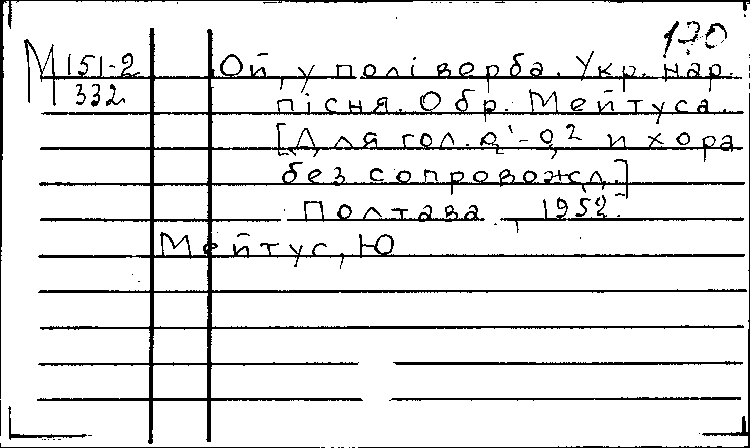 170
М 151-2
332
Ой, у полі верба. Укр. нар.
пісня. Обр. Мейтуса.
[Для гол. а¹-а² и хора
без сопровожд.]
Полтава, 1952.
Мейтус, Ю